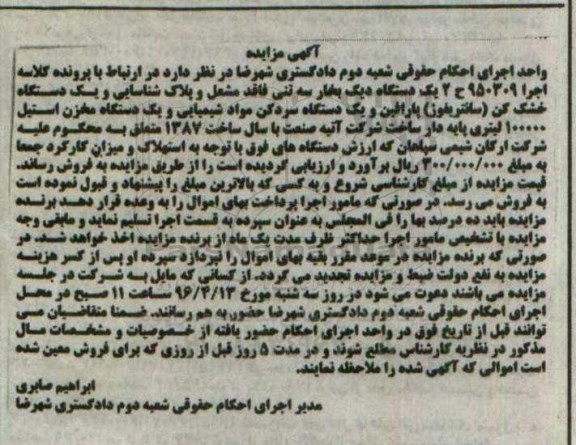 آگهی مزایده
واحد اجرای احکام حقوقی شعبه دوم دادگستری شهرضا در نظر دارد در ارتباط با پرونده کلاسه
اجرا ۹۵۰۳۰۹ ح ۲ یک دستگاه دیگ بخار سه تنی فاقد مشعل و پلاک شناسایی و یک دستگاه
خشک کن (سانتریفوژ) پارافین و یک دستگاه سردکن مواد شیمیایی و یک دستگاه مخزن استیل
۱۰۰۰۰ لیتری پایه دار ساخت شرکت آتیه صنعت با سال ساخت ۱۳۸۷ متعلق به محکوم علیه
شرکت ارکان شیمی سپاهان که ارزش دستگاه های فوق با توجه به استهلاک و میزان کارکرد جمعا
به مبلغ ۳۰۰/۰۰۰/۰۰۰ ریال برآورد و ارزیابی گردیده است را از طریق مزایده به فروش رساند.
قیمت مزایده از مبلغ کارشناسی شروع و به کسی که بالاترین مبلغ را پیشنهاد و قبول نموده است
به فروش می رسد. در صورتی که مامور اجرا پرداخت بهای اموال را به وعده قرار دهد برنده
مزایده باید ده درصد بها را فی المجلس به عنوان سپرده به قسمت اجرا تسلیم نماید و مابقی وجه
مزایده با تشخیص مامور اجرا حداکثر ظرف مدت یک ماه از برنده مزایده اخذ خواهد شد. در
صورتی که برنده مزایده در موعد مقرر بقیه بهای اموال را نپردازد سپرده او پس از کسر هزینه
مزایده به نفع دولت ضبط و مزایده تجدید می گردد. از کسانی که مایل به شرکت در جلسه
مزایده می باشند دعوت می شود در روز سه شنبه مورخ ۹۶/۴/۱۳ ساعت ۱۱ صبح در محل
اجرای احکام حقوقی شعبه دوم دادگستری شهرضا حضور به هم رسانند. ضمنا متقاضیان می
توانند قبل از تاریخ فوق در واحد اجرای احکام حضور یافته از خصوصیات و مشخصات مال
مذکور در نظریه کارشناس مطلع شوند و در مدت ۵ روز قبل از روزی که برای فروش معین شده
است اموالی که آگهی شده را ملاحظه نمایند.
ابراهیم صابری
مدیر اجرای احکام حقوقی شعبه دوم دادگستری شهرضا